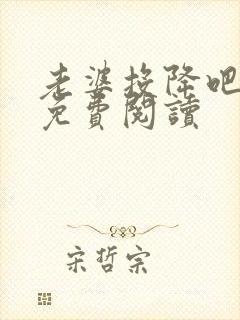 老婆投降吧
免費閱讀
宋哲宗